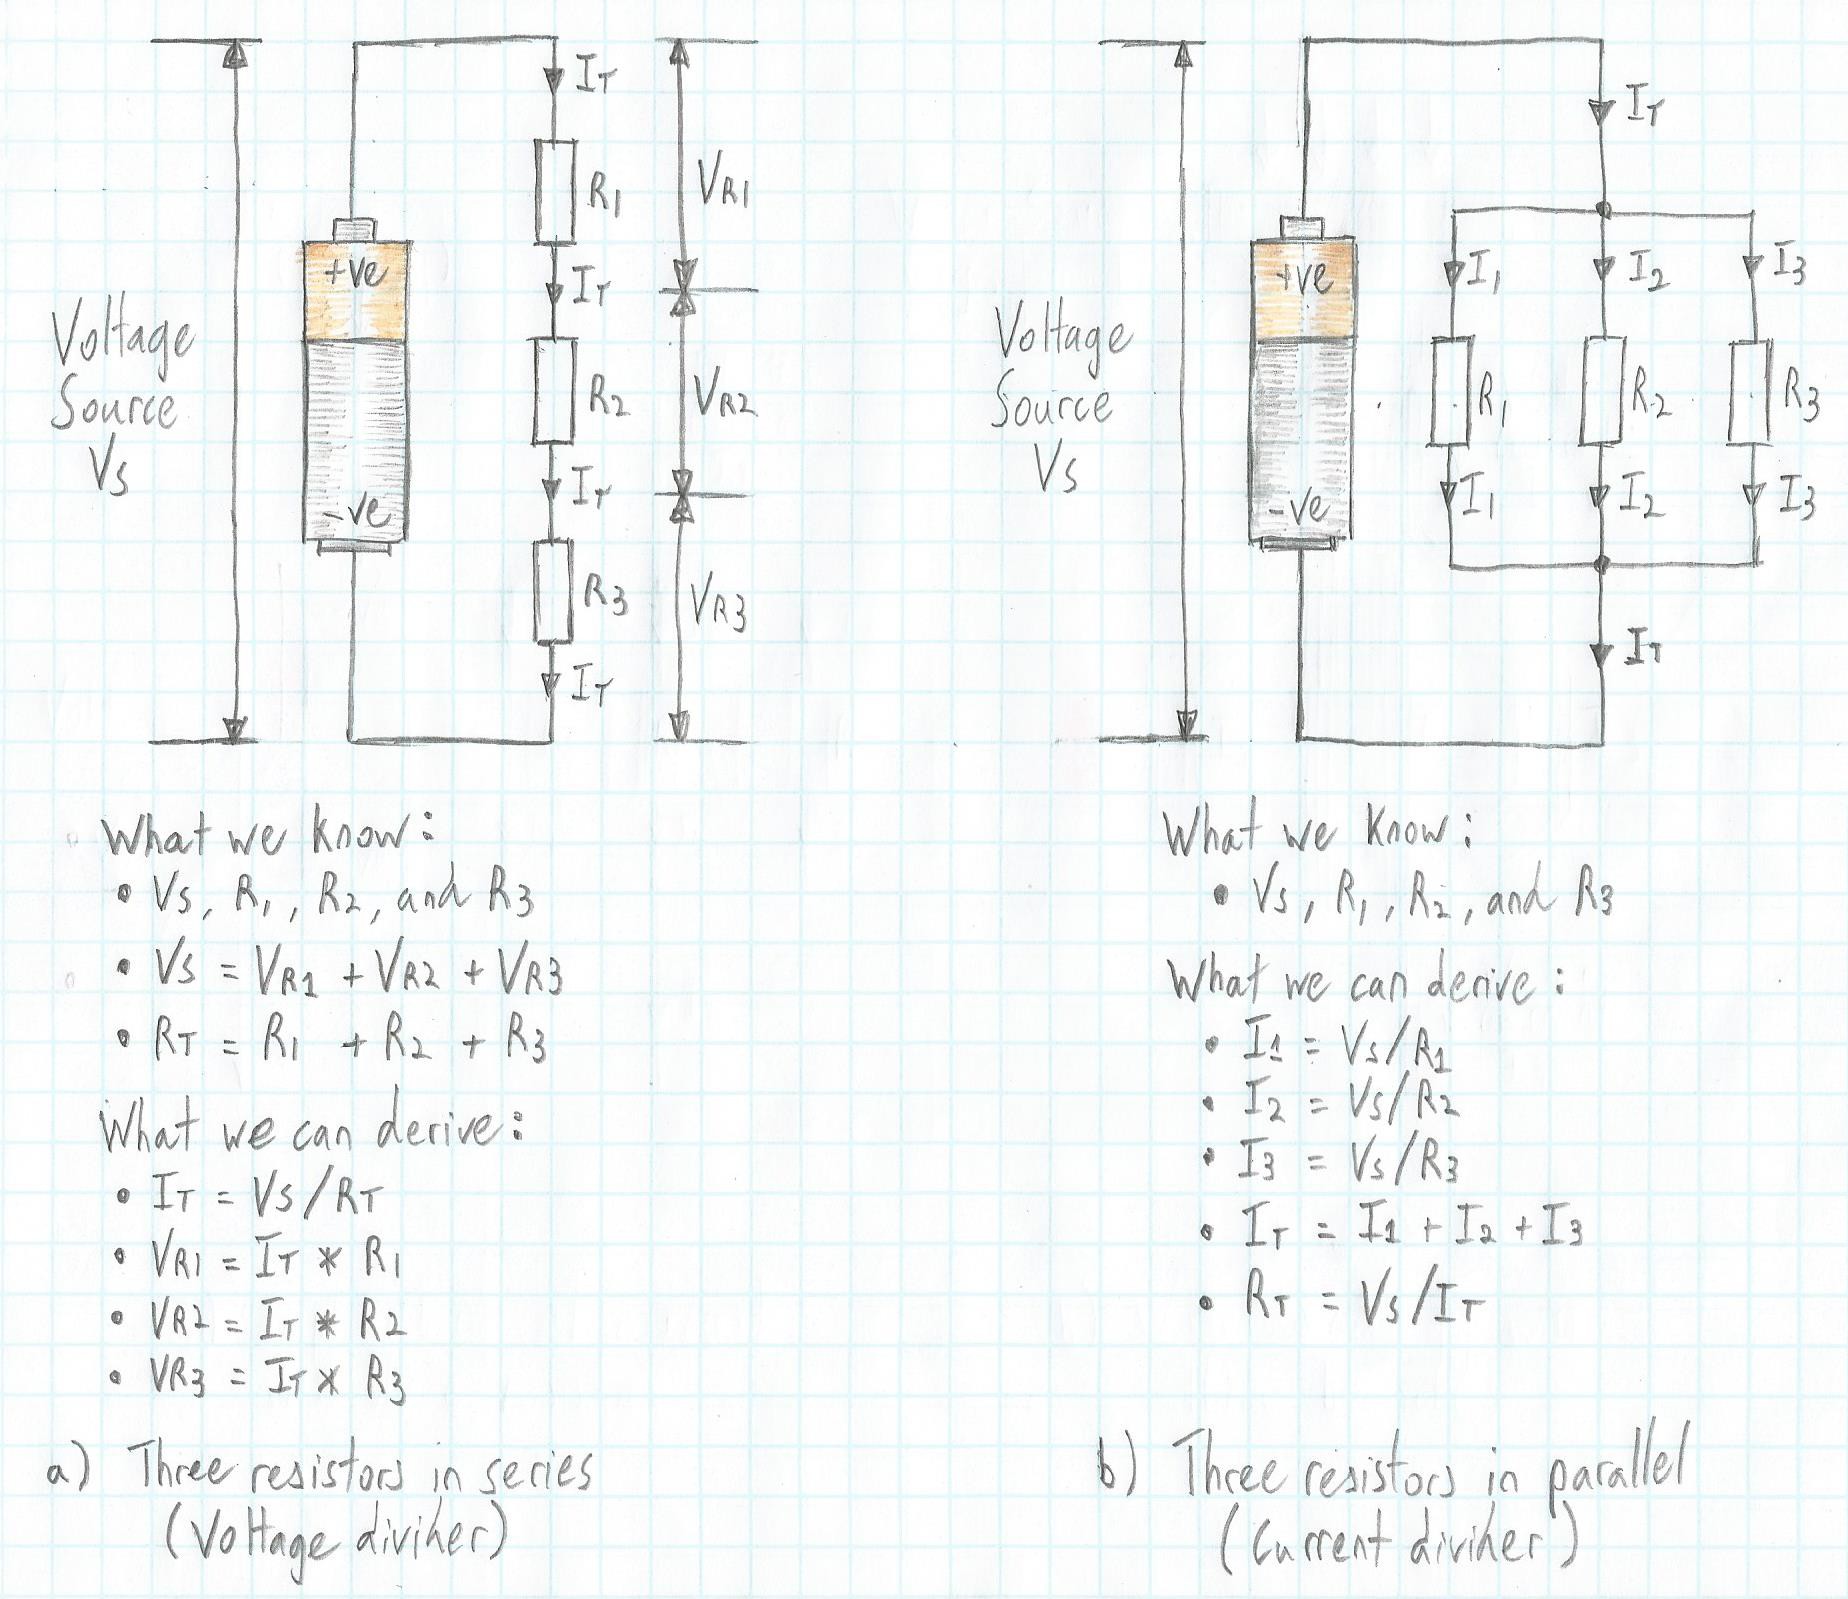 Voltage
Source
Vs
+ve
-ve
IT
R1
IT
R2
IT
R3
IT
VR1
VR2
VR3
What we know:
• Vs, R1, R2, and R3
• Vs = VR1 + VR2 + VR3
• RT = R1 + R2 + R3
What we can derive:
• IT = Vs/RT
• VR1 = IT * R1
• VR2 = IT * R2
• VR3 = IT * R3
a) Three resistors in series
(Voltage divider)
Voltage
Source
Vs
+ve
-ve
IT
I1 I2 I3
R1 R2 R3
I1 I2 I3
IT
What we know:
• Vs, R1, R2, and R3
What we can derive:
• I1 = Vs/R1
• I2 = Vs/R2
• I3 = Vs/R3
• IT = I1 + I2 + I3
• RT = Vs/IT
b) Three resistors in parallel
(Current divider)